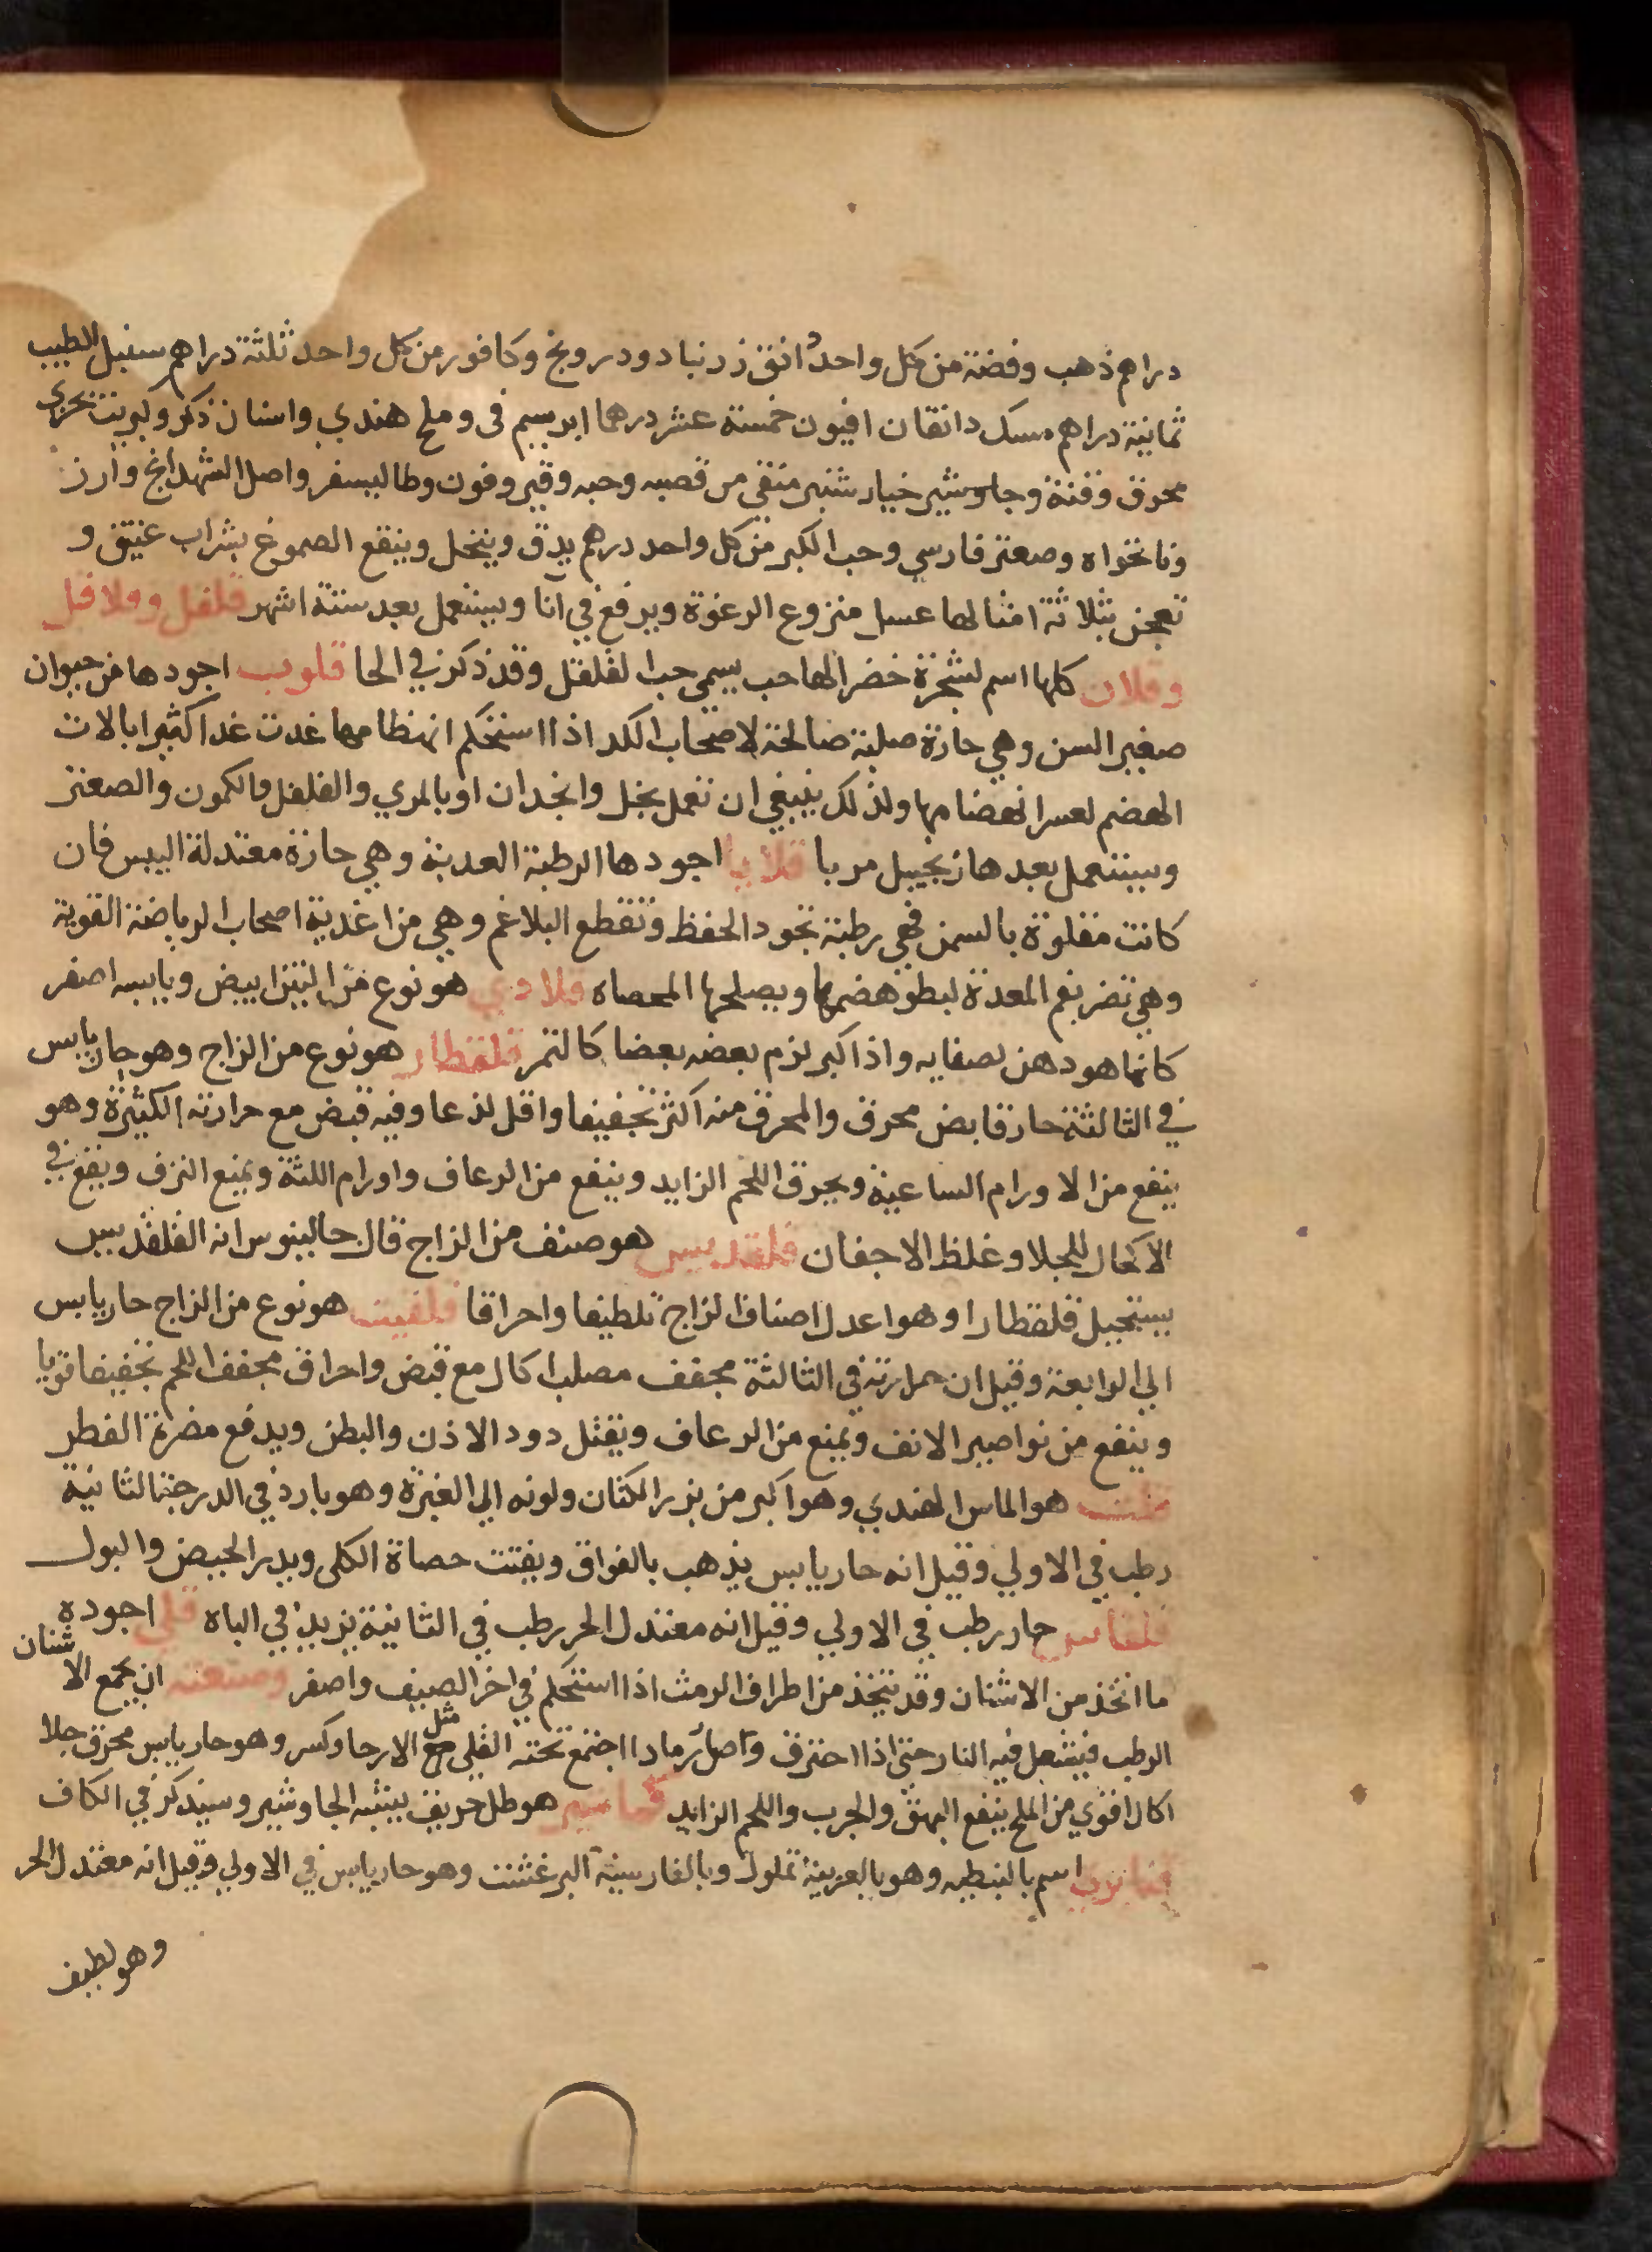 دراهم ذهب وفضة من كل واحد دانق زرنباد ودرونج وكافور من كل واحد ثلثة دراهم سنبل الطيب
ثمانية دراهم مسك دانقان افيون خمسة عشر درهما ابريسم في وملح هندي واسنان ذكر وكبريت بحري
محرق وقنة وجاوشير خيار شنبر منقي من قصبه وحبه وقير وفون وطاليسفر واصل الشهدانج وارز
ونانخواه وصعتر فارسي وحب الكبر من كل واحد درهم يدق وينخل وينقع الصموغ بشراب عتيق و
تعجن بثلاثة امثالها عسل منزوع الرغوة ويرفع في آنا ويستعمل بعد ستة اشهر قلقل وقلاقل
وقلان كلها اسم لشجرة خضرا لها حب يسمي حب القلقل وقد ذكر في الحا قلوب اجودها من حيوان
صغير السن وهي حارة صلبة صالحة لاصحاب الكد اذا استحكم انهظامها غدت غدا كثيرا بالات
الهضم لعسر انهضامها ولذلك ينبغي ان تعمل بخل وانجدان او بالمري والفلفل والكمون والصعتر
ويستعمل بعدها زنجبيل مربا قلايا اجودها الرطبة العدبة وهي حارة معتدلة اليبس فان
كانت مقلوة بالسمن فهي رطبة تجود الحفظ وتقطع البلاغم وهي من اغدية اصحاب الرياضة القوية
وهي تضر بفم المعدة لبطو هضمها ويصلحها المحصاه قلادي هو نوع من التين ابيض ويابسه اصفر
كانما هو دهن لصفايه واذا كبر لزم بعضه بعضا كالتمر قلقطار هو نوع من الزاج وهو حار يابس
في الثالثة حار قابض محرق والمحرق منه اكثر تجفيفا واقل لذعا وفيه قبض مع حرارته الكثيرة وهو
ينفع من الاورام الساعية ويحرق اللحم الزايد وينفع من الرعاف واورام اللثة ويمنع النزف ويقع في
الاكحال للجلا وغلظ الاجفان قلقديس هو صنف من الزاج قال جالينوس انه القلقديس
يستحيل قلقطارا وهو اعدل اصناف الزاج تلطيفا واحراقا قلقنت هو نوع من الزاج حار يابس
الي الرابعة وقيل ان حرارته في الثالثة مجفف مصلب اكال مع قبض واحراق مجفف اللحم تجفيفا قويا
وينفع من نواصير الانف ويمنع من الرعاف ويقتل دود الاذن والبطن ويدفع مضرة الفطر
هو الماس الهندي وهو اكبر من بزر الكتان ولونه الي الغبرة وهو بارد في الدرجة الثانية
رطب في الاولي وقيل انه حار يابس يذهب بالفواق ويفتت حصاة الكلى ويدر الحيض والبول
قلقاس حار رطب في الاولي وقيل انه معتدل الحر رطب في الثانية يزيد في الباه قلي اجوده
ما اتخذ من الاشنان وقد يتخذ من اطراف الرمث اذا استحكم في اخر الصيف واصفر وصنعته ان يجمع الاشنان
الرطب فيشعل فيه النار حتى اذا احترق وصار رمادا اجتمع تحته القلي مثل الارحا وكسر وهو حار يابس محرق جلا
اكال اقوي من الملح ينفع البهق والجرب واللحم الزايد قماشير هو طل حريف يشبه الجاوشير وسيذكر في الكاف
قنابري اسم بالنبطيه وهو بالعربية تملول وبالفارسية البرغشت وهو حار يابس في الاولي وقيل انه معتدل الحر
وهو لطيف